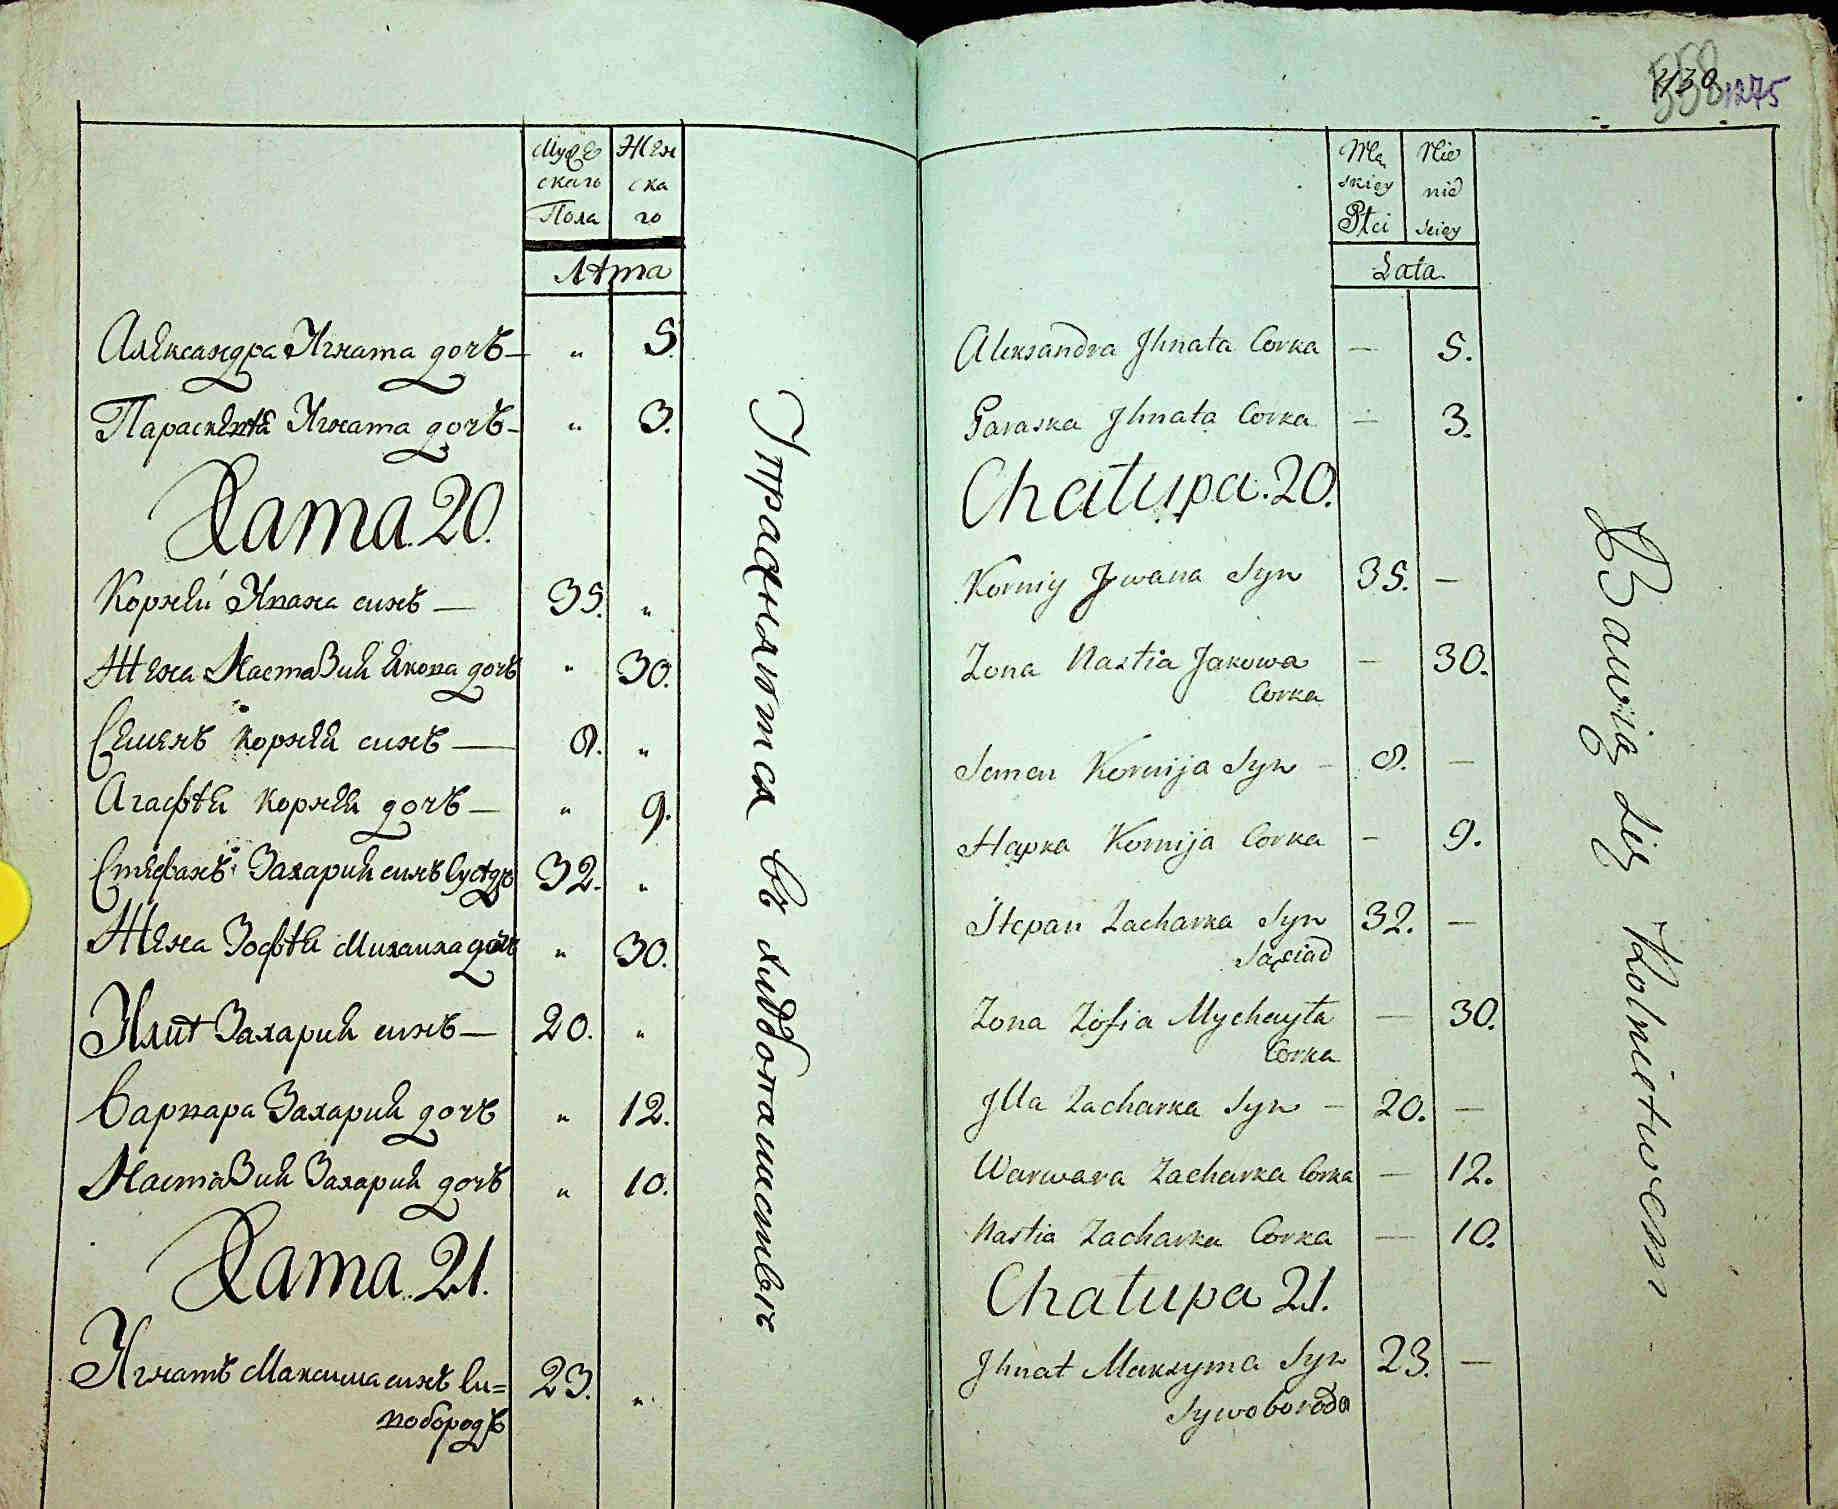 Мужескаго Пола
Женскаго
Лѣта
Александра Игната дочъ — „ 5.
Параскевѣя Игната дочъ — „ 3.
Хата 20.
Корнѣй Ивана синъ — 35. „
Жена Настазия Якова дочъ „ 30.
Семенъ Корнѣя синъ — 8. „
Агафѣя Корнѣя дочъ — „ 9.
Стефанъ Захария синъ Сусѣдъ 32. „
Жена Зофѣя Михаила дочъ „ 30.
Илиѣ Захария синъ — 20. „
Варвара Захария дочъ „ 12.
Настазия Захария дочъ „ 10.
Хата 21.
Игнатъ Максима синъ Си=
вобородъ 23. „
Упражняютса въ хлѣбопашествѣ
1275
Mę
skiey
Płci
Nie
wie
sciey
Lata
Aleksandra Jhnata Corka — 5.
Paraska Jhnata Corka — 3.
Chałupa. 20.
Korniy Jwana Syn 35. —
Zona Nastia Jakowa — 30.
Corka
Semen Kornija Syn — 8. —
Hapka Kornija Corka — 9.
Stepan Zacharka Syn 32. —
Sąsiad
Zona Zofia Mychayła — 30.
Corka
Jlla Zacharka Syn — 20. —
Warwara Zacharka Corka — 12.
Nastia Zacharka Corka — 10.
Chałupa 21.
Jhnat Maksyma Syn 23. —
Sywoboroda
Bawią się Rolnictwem